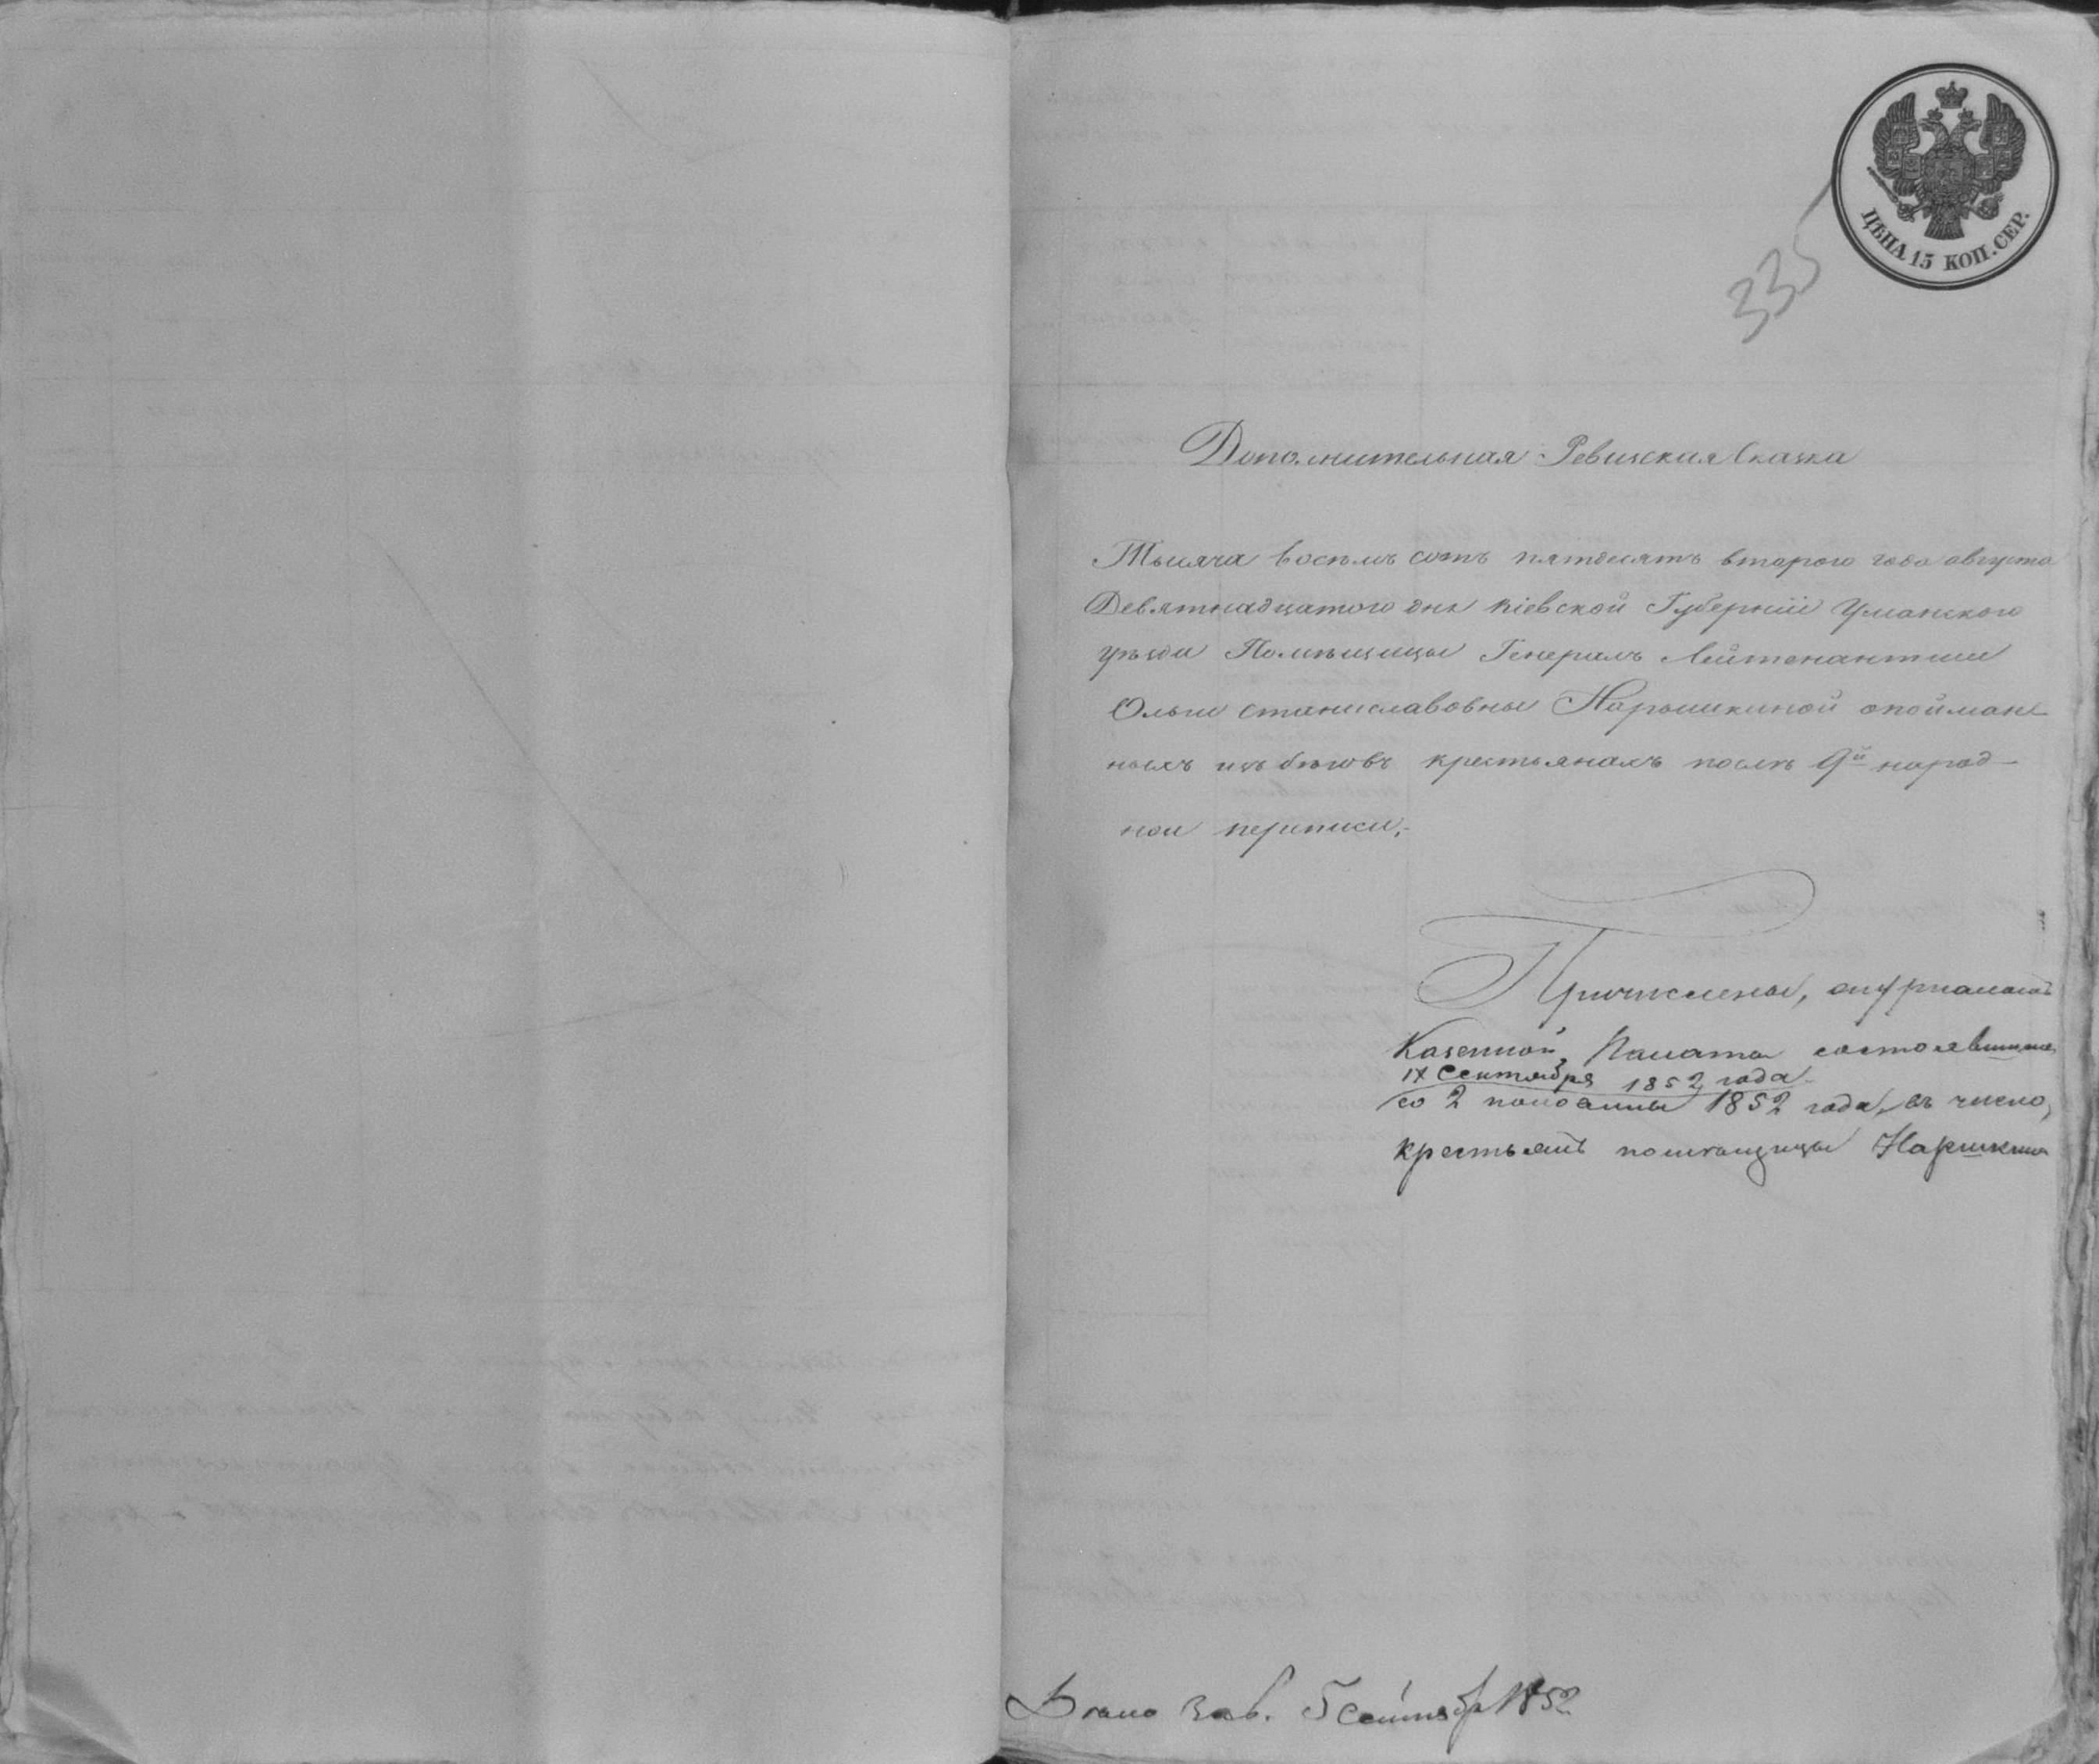 ЦѢНА 15 КОП. СЕР.
335
Дополнительная Ревизская Сказка
Тысяча восемь сотъ пятдесятъ втораго года августа
Девятнадцатого дня Кіевской Губерніи Уманского
уѣзда Помѣщицы Генералъ Лейтенантши
Ольги Станиславовны Нарышкиной опойман
ныхъ изъ бѣговъ крестьянахъ послѣ 9й народ-
ной переписи.
Причислены,
Казенной Палаты состоявшимся
IX Сентября 1852 года
со 2 половины 1852 года, въ число,
крестьянъ помѣщицы Нарышкина
5 Сентябр 1852